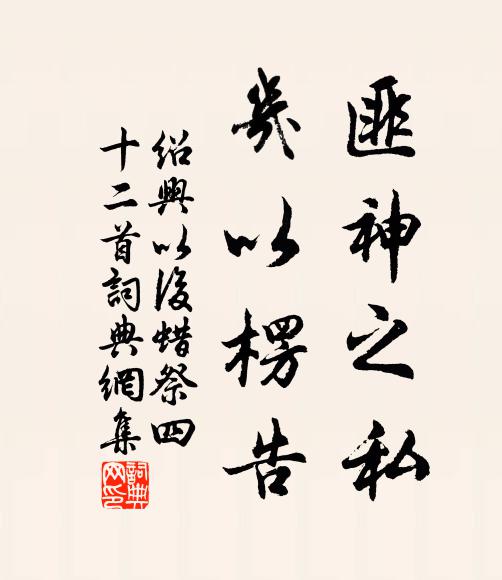 匪神之私
幾以楞告
紹興以後蜡祭四
十二首詞典網集
詞典网印